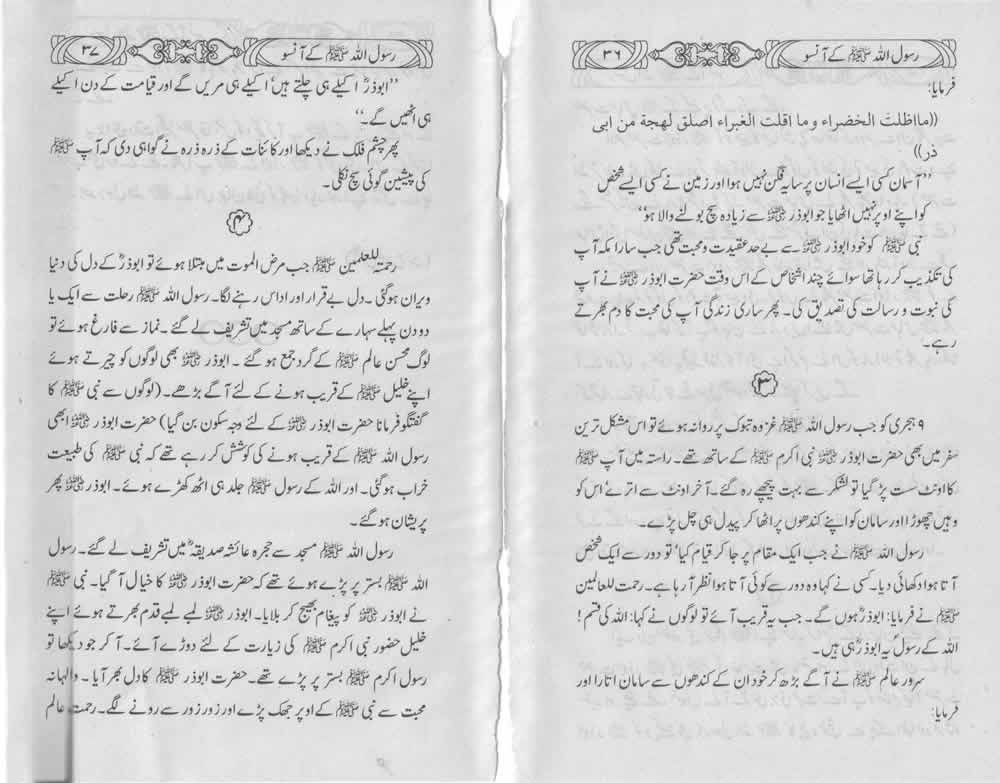 رسول اللہ ﷺ کے آنسو ۳۶
فرمایا:
((مااظلت الخضراء وما اقلت الغبراء اصلق لهجة من ابی
ذر))
”آسمان کسی ایسے انسان پر سایہ فگن نہیں ہوا اور زمین نے کسی ایسے شخص
کو اپنے اوپر نہیں اٹھایا جو ابوذر ؓ سے زیادہ سچ بولنے والا ہو“
نبی ﷺ کو خود ابوذر ؓ سے بے حد عقیدت و محبت تھی جب سارا مکہ آپ
کی تکذیب کر رہا تھا سوائے چند اشخاص کے اس وقت حضرت ابوذر ؓ نے آپ
کی نبوت و رسالت کی تصدیق کی۔ پھر ساری زندگی آپ کی محبت کا دم بھرتے
رہے۔
۳
۹ ہجری کو جب رسول اللہ ﷺ غزوہ تبوک پر روانہ ہوئے تو اس مشکل ترین
سفر میں بھی حضرت ابوذر ؓ نبی اکرم ﷺ کے ساتھ تھے۔ راستہ میں آپ ﷺ
کا اونٹ سست پڑ گیا تو لشکر سے بہت پیچھے رہ گئے۔ آخر اونٹ سے اترے‘ اس کو
وہیں چھوڑا اور سامان کو اپنے کندھوں پر اٹھا کر پیدل ہی چل پڑے۔
رسول اللہ ﷺ نے جب ایک مقام پر جا کر قیام کیا‘ تو دور سے ایک شخص
آتا ہوا دکھائی دیا۔ کسی نے کہا وہ دور سے کوئی آتا ہوا نظر آ رہا ہے۔ رحمت للعالمین
ﷺ نے فرمایا: ابوذرؓ ہوں گے۔ جب یہ قریب آئے تو لوگوں نے کہا: اللہ کی قسم!
اللہ کے رسول یہ ابوذرؓ ہی ہیں۔
سرور عالم ﷺ نے آگے بڑھ کر خود ان کے کندھوں سے سامان اتارا اور
فرمایا:
رسول اللہ ﷺ کے آنسو ۳۷
”ابوذرؓ اکیلے ہی چلتے ہیں‘ اکیلے ہی مریں گے اور قیامت کے دن اکیلے
ہی اٹھیں گے۔“
پھر چشم فلک نے دیکھا اور کائنات کے ذرہ ذرہ نے گواہی دی کہ آپ ﷺ
کی پیشین گوئی سچ نکلی۔
۴
رحمتہ للعلمین ﷺ جب مرض الموت میں مبتلا ہوئے تو ابوذرؓ کے دل کی دنیا
ویران ہو گئی۔ دل بے قرار اور اداس رہنے لگا۔ رسول اللہ ﷺ رحلت سے ایک یا
دو دن پہلے سہارے کے ساتھ مسجد میں تشریف لے گئے۔ نماز سے فارغ ہوئے تو
لوگ محسن عالم ﷺ کے گرد جمع ہو گئے۔ ابوذر ؓ بھی لوگوں کو چیرتے ہوئے
اپنے خلیل ﷺ کے قریب ہونے کے لئے آگے بڑھے۔ (لوگوں سے نبی ﷺ کا
گفتگو فرمانا حضرت ابوذر ؓ کے لئے وجہ سکون بن گیا) حضرت ابوذر ؓ ابھی
رسول اللہ ﷺ کے قریب ہونے کی کوشش کر رہے تھے کہ نبی ﷺ کی طبیعت
خراب ہو گئی۔ اور اللہ کے رسول ﷺ جلد ہی اٹھ کھڑے ہوئے۔ ابوذر ؓ پھر
پریشان ہو گئے۔
رسول اللہ ﷺ مسجد سے حجرہ عائشہ صدیقہؓ میں تشریف لے گئے۔ رسول
اللہ ﷺ بستر پر پڑے ہوئے تھے کہ حضرت ابوذر ؓ کا خیال آ گیا۔ نبی ﷺ
نے ابوذر ؓ کو پیغام بھیج کر بلایا۔ ابوذر ؓ لمبے لمبے قدم بھرتے ہوئے اپنے
خلیل حضور نبی اکرم ﷺ کی زیارت کے لئے دوڑے آئے۔ آ کر جو دیکھا تو
رسول اکرم ﷺ بستر پر پڑے تھے۔ حضرت ابوذر ؓ کا دل بھر آیا۔ والہانہ
محبت سے نبی ﷺ کے اوپر جھک پڑے اور زور زور سے رونے لگے۔ رحمت عالم